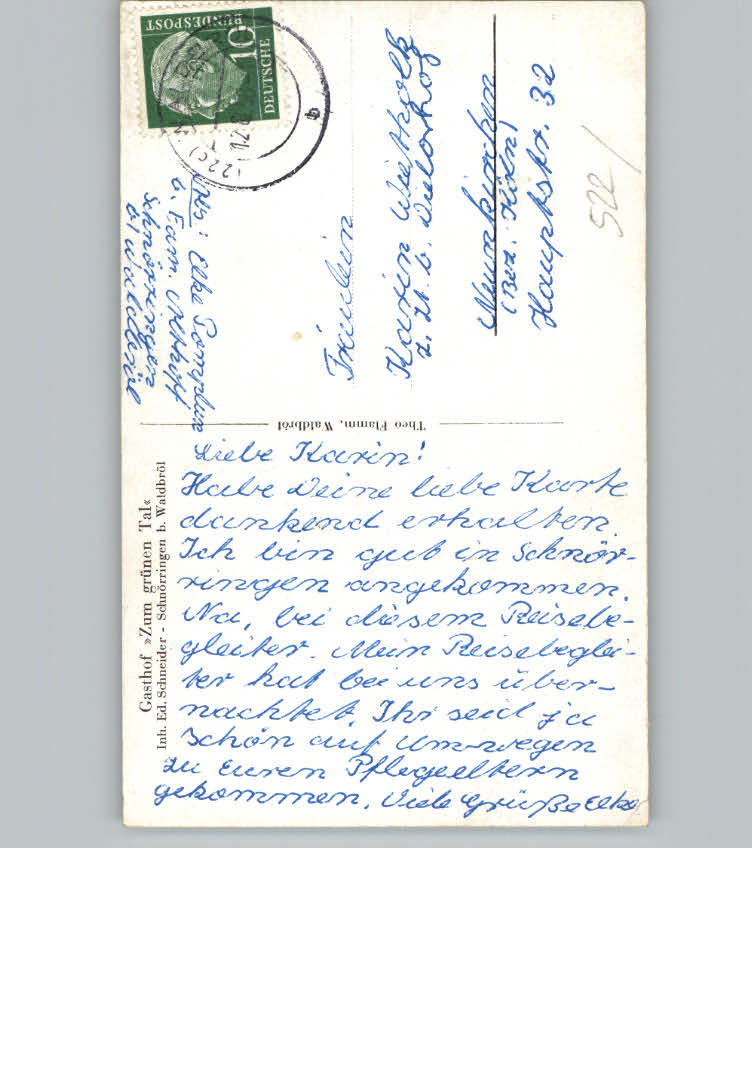 Liebe Karin!
Habe Deine liebe Karte
dankend erhalten.
Ich bin gut in Schnör-
ringen angekommen.
Na, bei diesem Reisebe-
gleiter. Mein Reisebeglei-
ter hat bei uns über-
nachtet. Ihr seid ja
schön auf Umwegen
zu Euren Pflegeeltern
gekommen. Viele Grüße Elke
Gasthof »Zum grünen Tal«
Inh. Ed. Schneider - Schnörringen b. Waldbröl
Theo Flamm, Waldbröl
Abs: Elke
b. Fam. Althoff
Schnörringen
Fräulein
Karin
z. Zt. b.
Neunkirchen
(Bez. Köln)
Hauptstr. 32
522/
DEUTSCHE
BUNDESPOST
10
(22c)
b